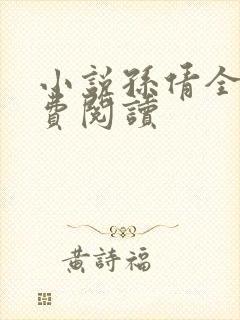 小說孫倩全
費閱讀
黃詩福